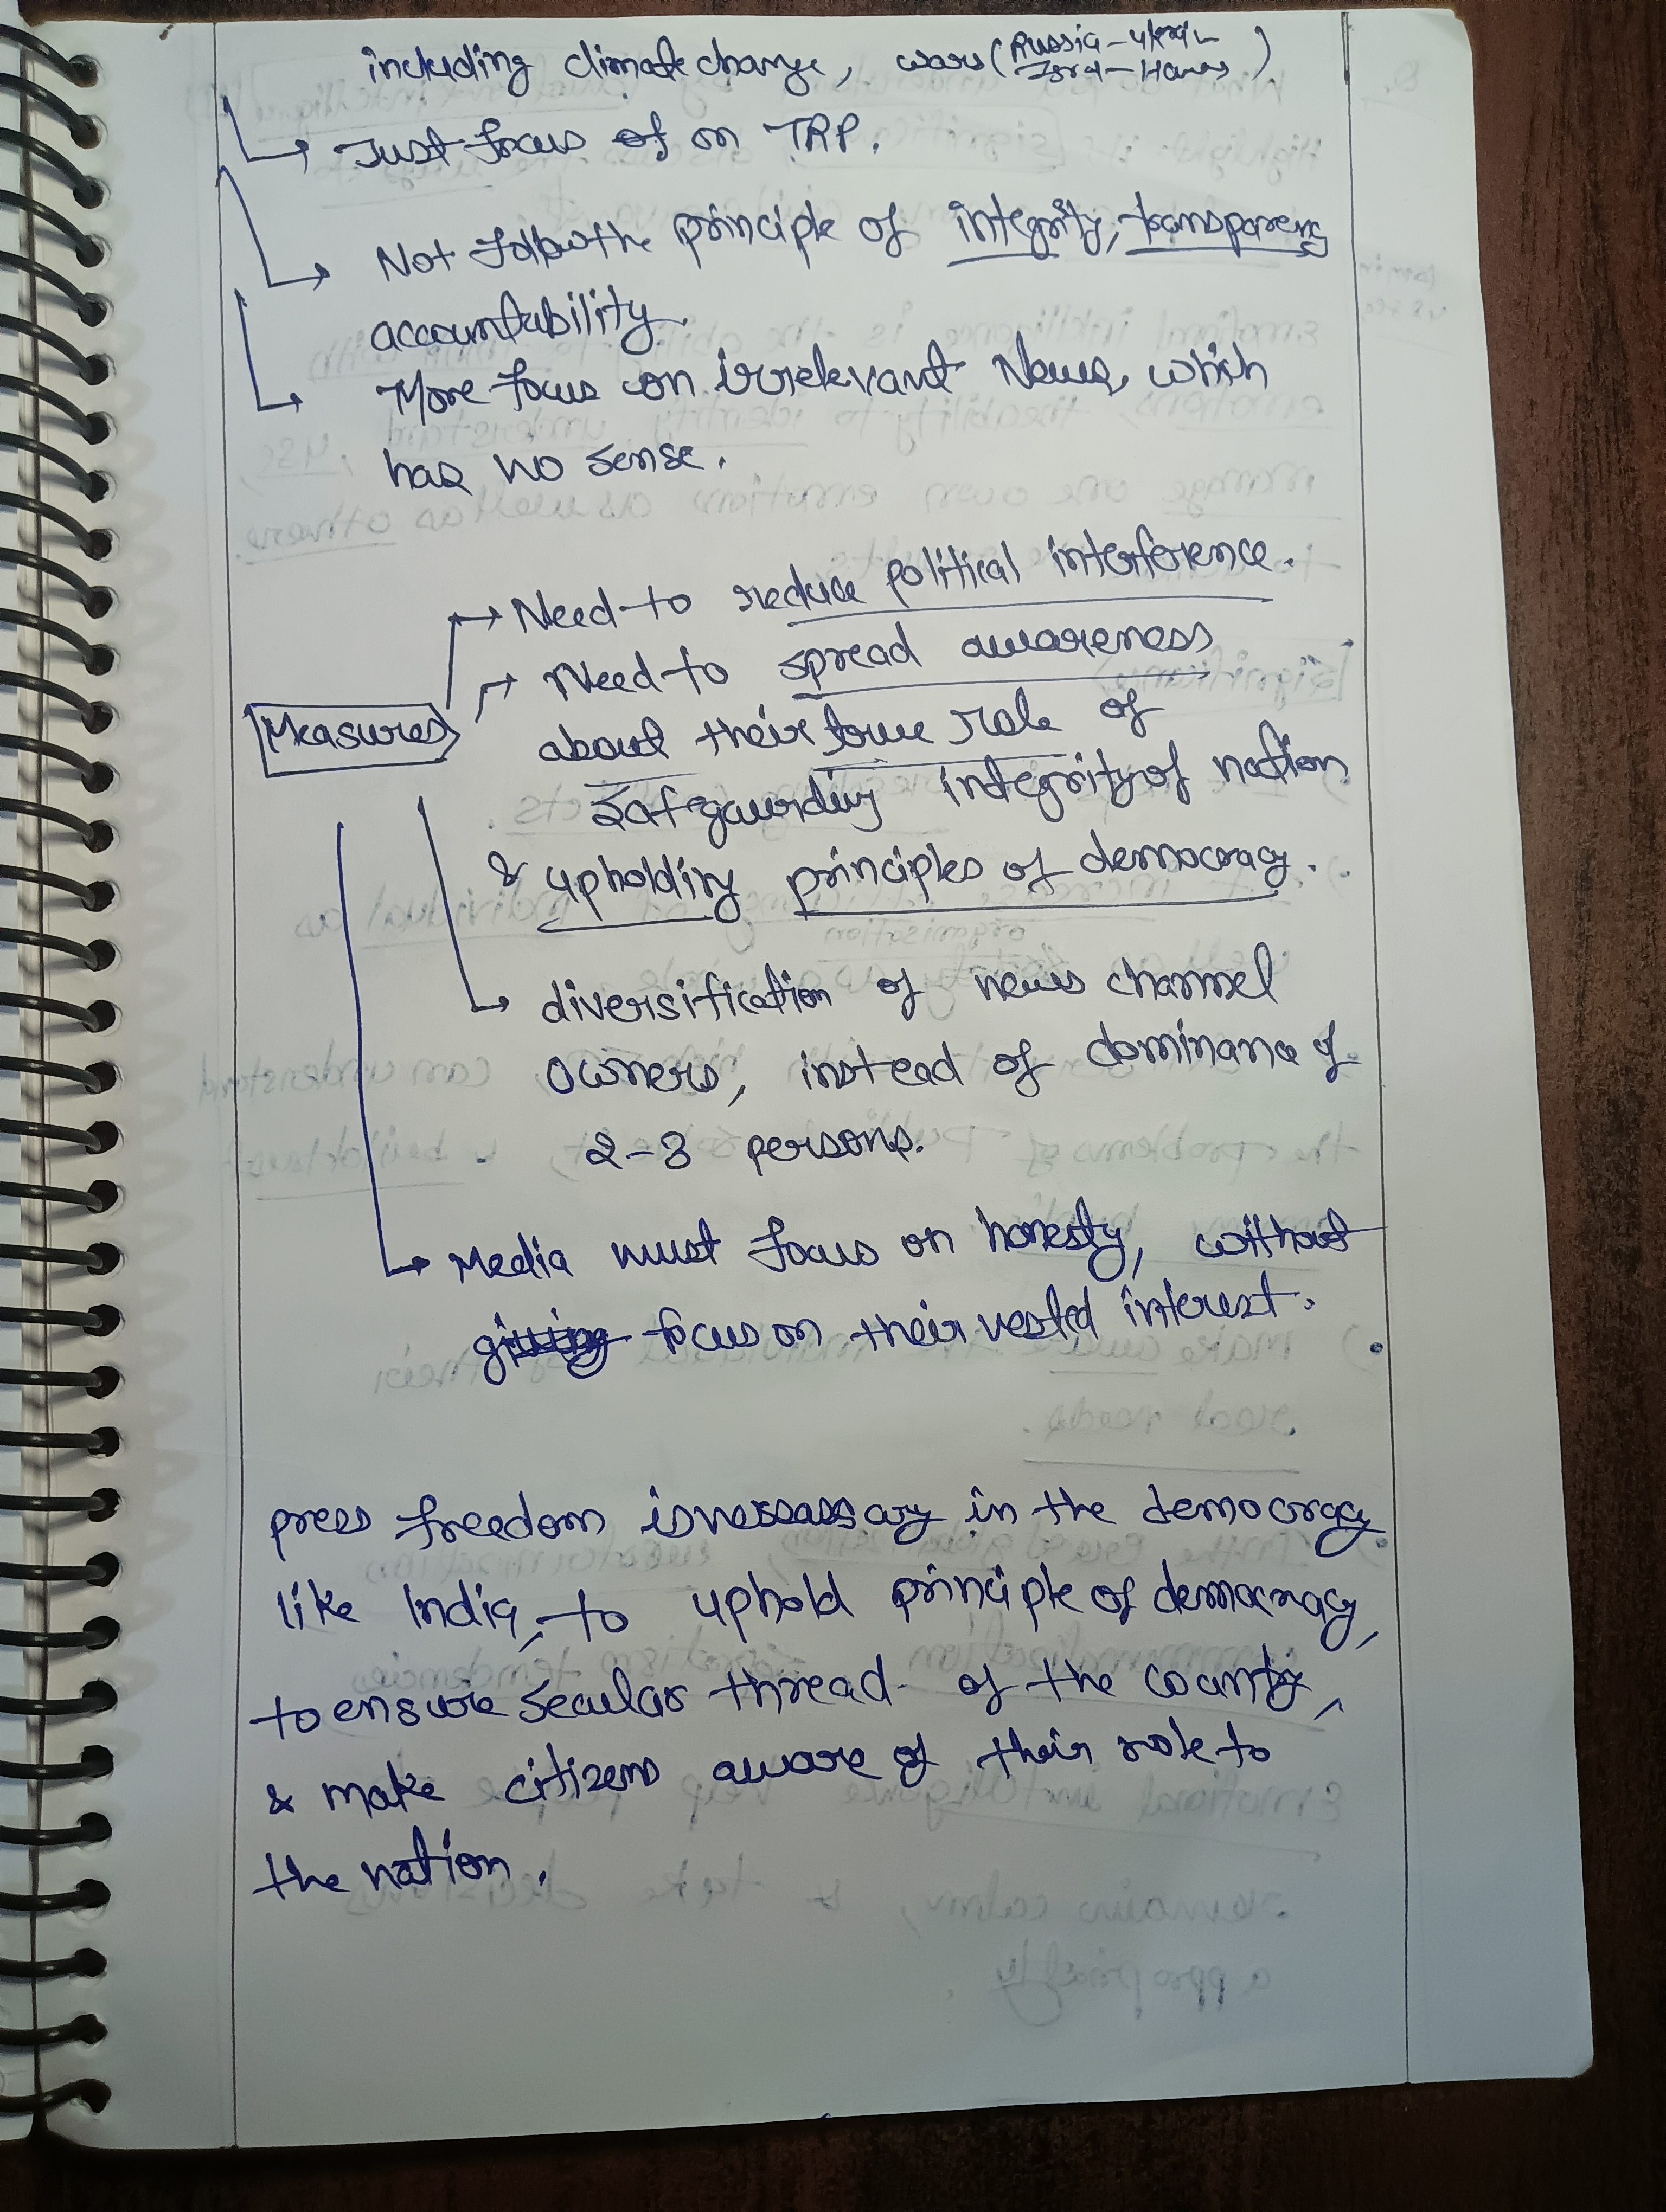 including climate change, wars (Russia-Ukra
Isra-Hamas)
Just focus of on TRP.
Not follow the principle of integrity, transparency
accountability.
More focus on irrelevant News, which
has no sense.
Need to reduce political interference.
Need to spread awareness
Measures
about their true role of
safegaurding integrity of nation
& upholding principles of democracy.
diversification of news channel
owners, instead of dominance of
2-3 persons.
Media must focus on honesty, without
focus on their vested interest.
press freedom is necessary in the democracy
like India, to uphold principle of democracy,
to ensure secular thread of the country,
& make citizens aware of their role to
the nation.